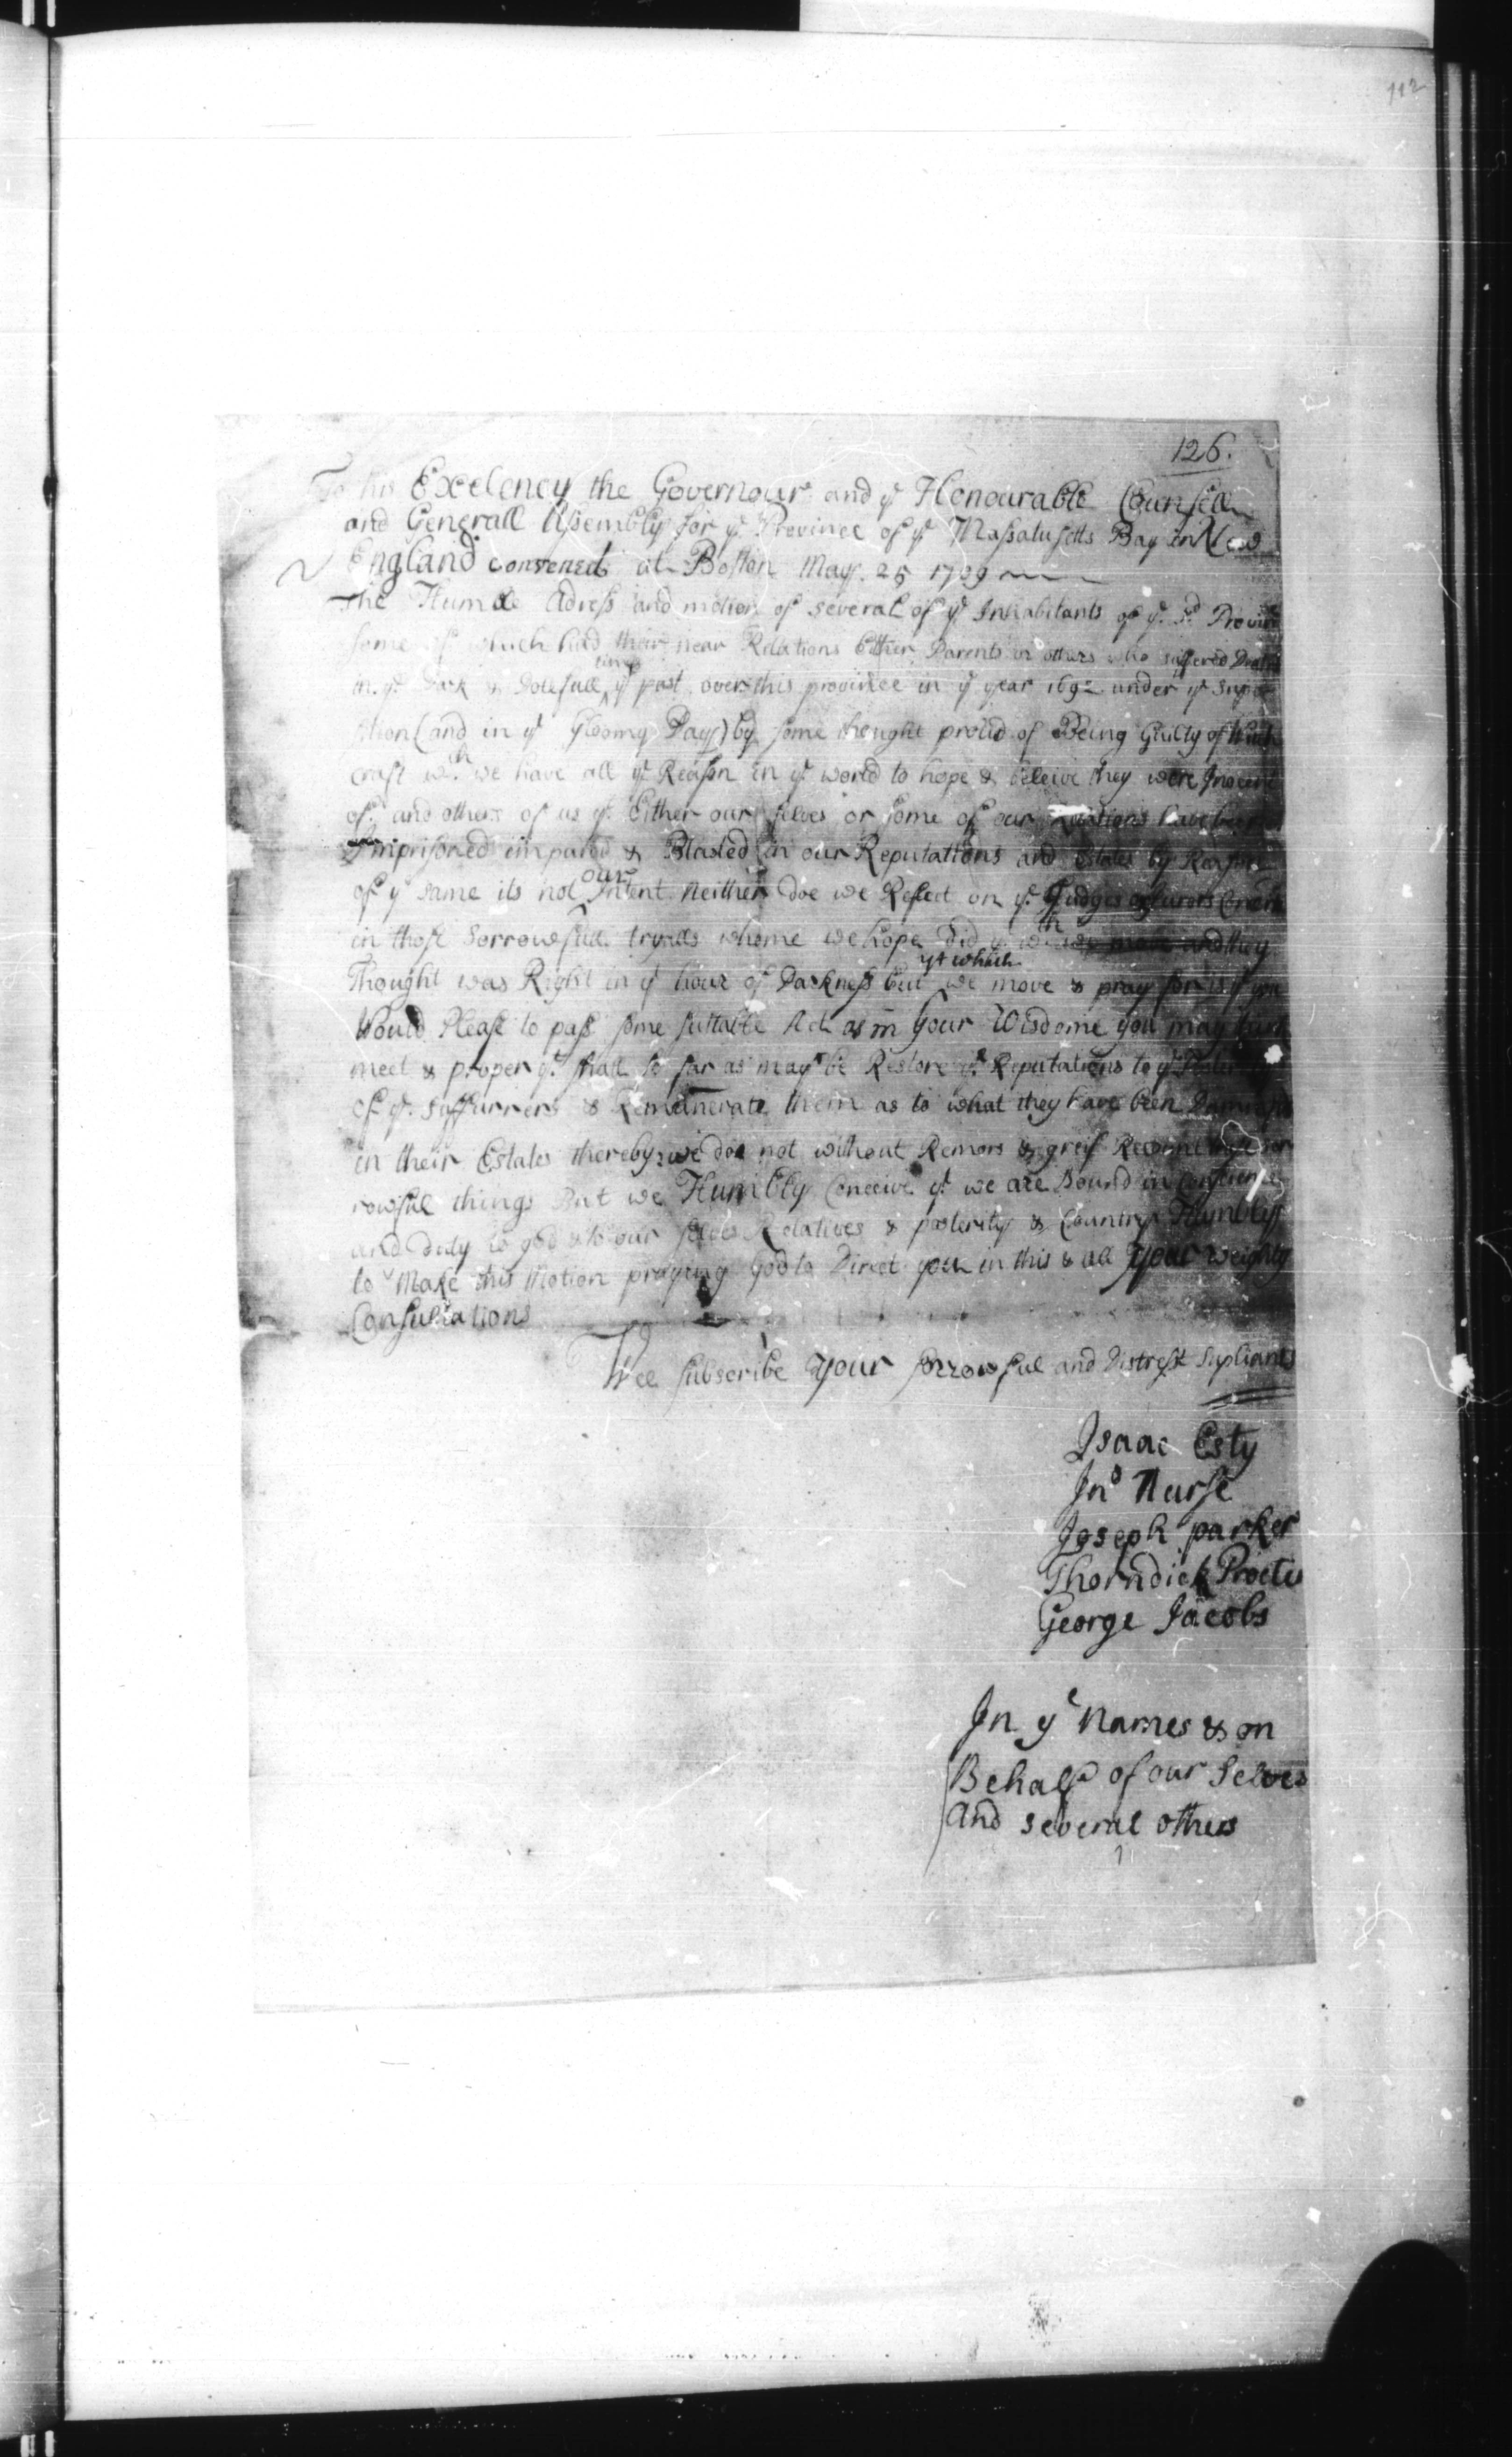 112
126.
To his Excelency the Governour and ye Honourable Counsell
and Generall Assembly for ye Province of ye Massatusetts Bay in New
England convened at Boston May. 25 1709
The Humble Adress and motion of several of ye Inhabitants of ye sd Province
some of which had their near Relations Either Parents or others who suffered Death
in ye Dark & Dolefull times yt past over this province in ye year 1692 under ye Supo
sition (and in yt Gloomy Day) by some thought proved of Being Guilty of Witch
craft wch we have all ye Reason in ye world to hope & beleive they were Inocent
of. and others of us yt Either our selves or some of our Relations have been
Imprisoned impared & Blasted in our Reputations and Estates by Reason
of ye same its not our Intent Neither doe we Reflect on ye Judges or Jurors
in those Sorrowfull tryalls whome we hope did yt wch they
Thought was Right in yt hour of Darkness but yt which we move & pray for is yt you
Would Please to pass some suitable Act as in Your Wisdome you may think
meet & proper yt shall so far as may be Restore ye Reputations to ye Posterity
of ye suffurrers & Remunerate them as to what they have been Damnified
in their Estates thereby we doe not without Remors & greif Recount these sor
rowful things But we Humbly Conceive yt we are Bound in Conscience
and Duty to god & to our selves Relatives & posterity & Country Humbly
to Make this Motion praying God to Direct you in this & all Your weighty
Consultations
Wee subscribe Your sorrowful and Distrest Supliants
Isaac Esty
Jno Nurse
Joseph parker
Thorndick Procter
George Jacobs
In ye Names & on
Behalf of our Selves
and several others